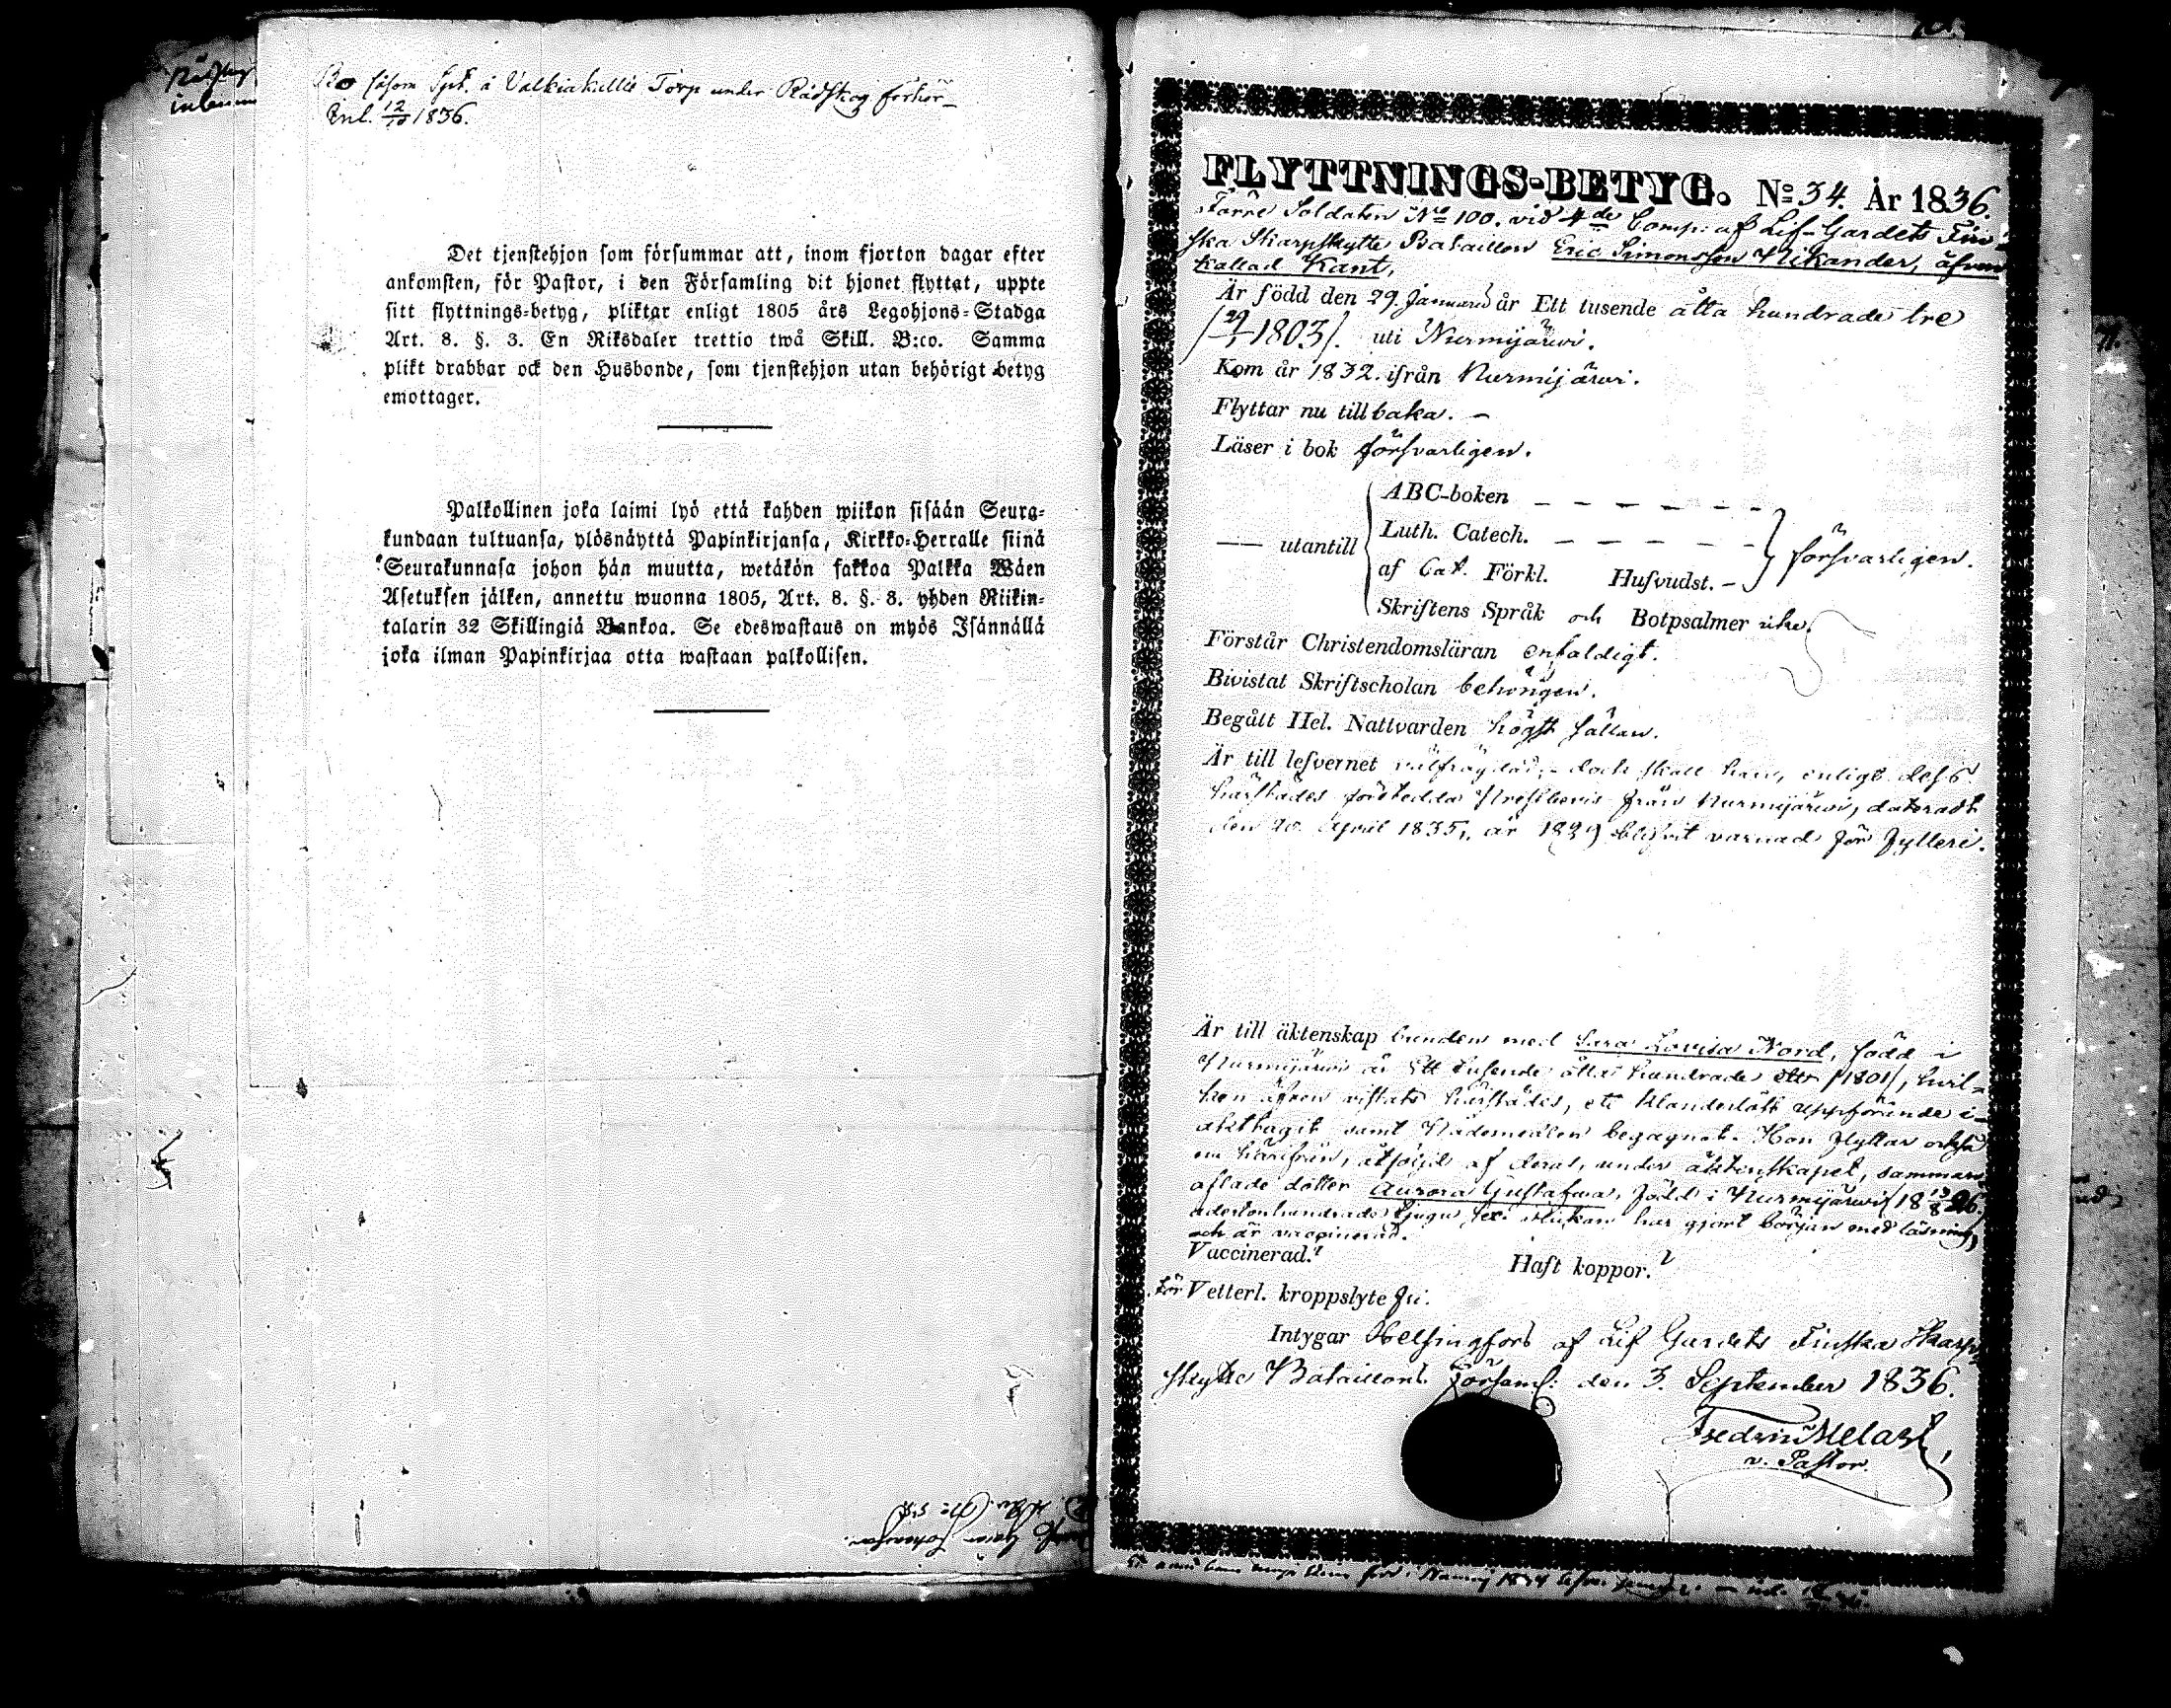 Bo såsom Spt. å Valkiakallio Torp under Rådskog förhör
Inl. 12/10 1836.
Det tjenstehjon som försummar att, inom fjorton dagar efter
ankomsten, för Pastor, i den Församling dit hjonet flyttat, uppte
sitt flyttnings-betyg, pliktar enligt 1805 års Legohjons-Stadga
Art. 8. §. 3. En Riksdaler trettio twå Skill. B:co. Samma
plikt drabbar ock den Husbonde, som tjenstehjon utan behörigt betyg
emottager.
Palkollinen joka laimi lyö että kahden wiikon sisään Seura-
kundaan tultuansa, ylösnäyttä Papinkirjansa, Kirkko-Herralle siinä
Seurakunnasa johon hän muutta, wetäkön sakkoa Palkka Wäen
Asetuksen jälken, annettu wuonna 1805, Art. 8. §. 3. yhden Riikin-
talarin 32 Skillingiä Bankoa. Se edeswastaus on myös Isännällä
joka ilman Papinkirjaa otta wastaan palkollisen.
FLYTTNINGS-BETYG. No 34. År 1836.
Förre Soldaten No 100. vid 4de Comp: af Lif-Gardets Fin-
ska Skarpskytte Bataillon Eric Simonsson Nikander, äfven
kallad Kant,
Är född den 29. Januarii år Ett tusende åtta hundrade tre
/29/1 1803/. uti Nurmijärwi.
Kom år 1832. ifrån Nurmijärwi.
Flyttar nu tillbaka. –
Läser i bok försvarligen.
ABC-boken – – – – – –
— utantill Luth. Catech. – – – – – försvarligen.
af Cat. Förkl. Husvudst. –
Skriftens Språk och Botpsalmer icke.
Förstår Christendomsläran enfaldigt.
Bivistat Skriftscholan behörigen.
Begått Hel. Nattvarden högst sällan.
Är till lefvernet välfrägdad; – dock skall han, enligt dess
härstädes företedda Prestbevis från Nurmijärwi, dateradt
den 20. April 1835, år 1829 blifvit varnad för fylleri.
Är till äktenskap bunden med Sara Lovisa Nord, född i
Nurmijärwi år Ett tusende åtta hundrade ett /1801/, hvil-
ken äfven vistats härstädes, ett klanderlöst uppförande i-
akttagit samt Nådemedlen begagnat. Hon flyttar också
nu härifrån, åtföljd af deras, under äktenskapet, samman
aflade dotter Aurora Gustafva, född i Nurmijärwi 18 13/8 26.
adertonhundrade tjugu sex. Flickan har gjort början med läsning,
och är vaccinerad.
Vaccinerad.? Haft koppor.?
För Vetterl. kroppslyte fri.
Intygar Helsingfors af Lif Gardets Finska Skarp-
skytte Bataillons Församl: den 3. September 1836.
v. Pastor.